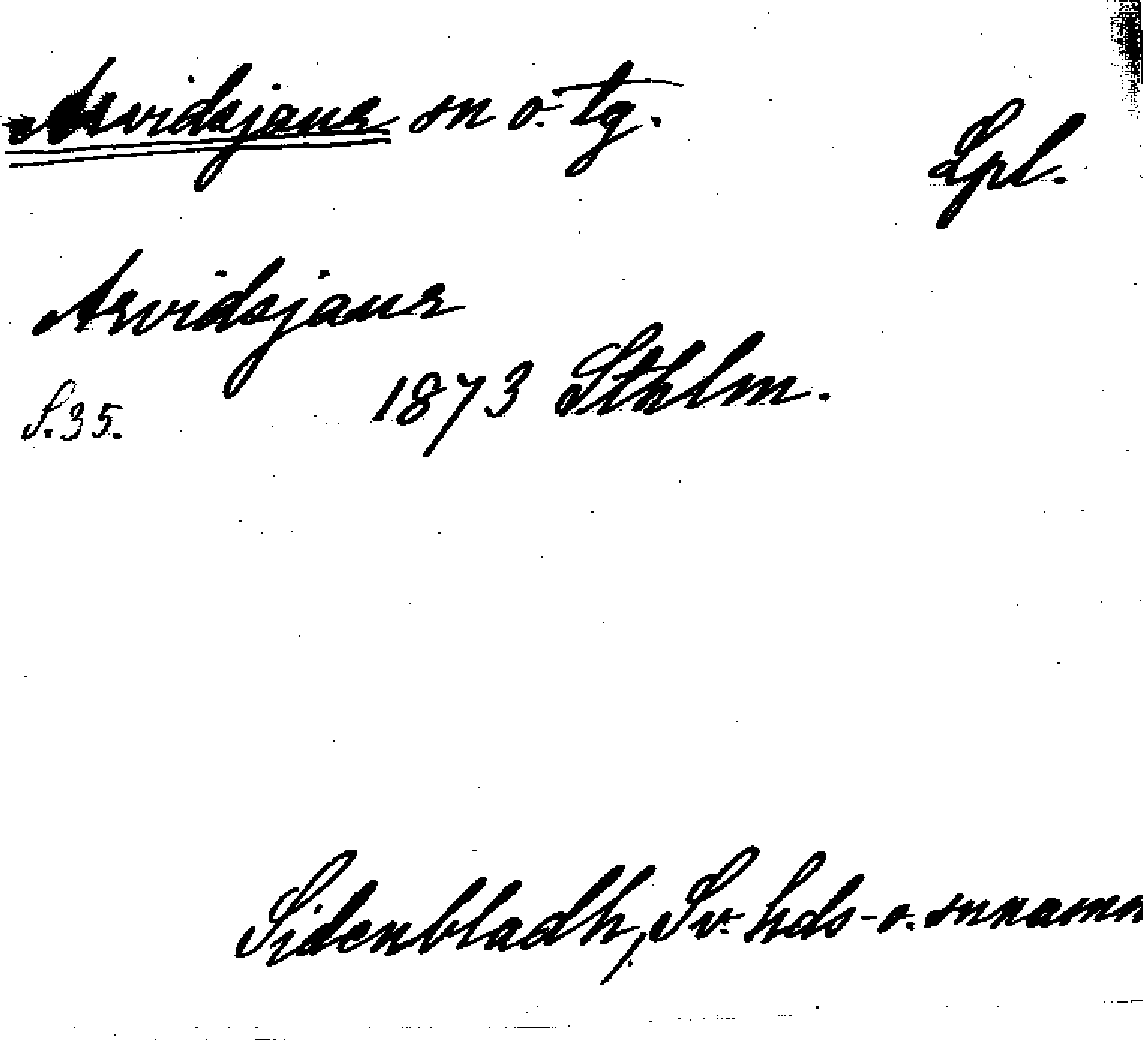 Arvidsjaur sn o. tg.
Lpl.
Arvidsjaur
S. 35. 1873 Sthlm.
Sidenbladh, Sv. hds- o. snnamn